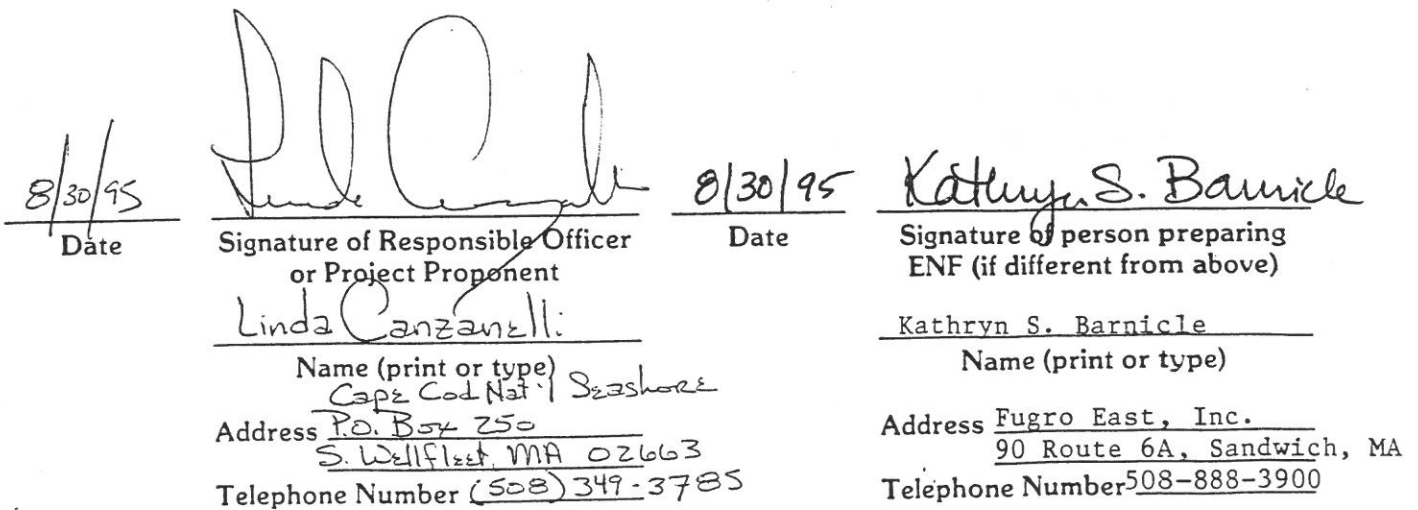 8/30/95
Date
Linda Canzanelli
Signature of Responsible Officer
or Project Proponent
Linda Canzanelli
Name (print or type)
Cape Cod Nat'l Seashore
Address P.O. Box 250
S. Wellfleet, MA 02663
Telephone Number (508) 349-3785
8/30/95
Date
Kathryn S. Barnicle
Signature of person preparing
ENF (if different from above)
Kathryn S. Barnicle
Name (print or type)
Address Fugro East, Inc.
90 Route 6A, Sandwich, MA
Telephone Number 508-888-3900